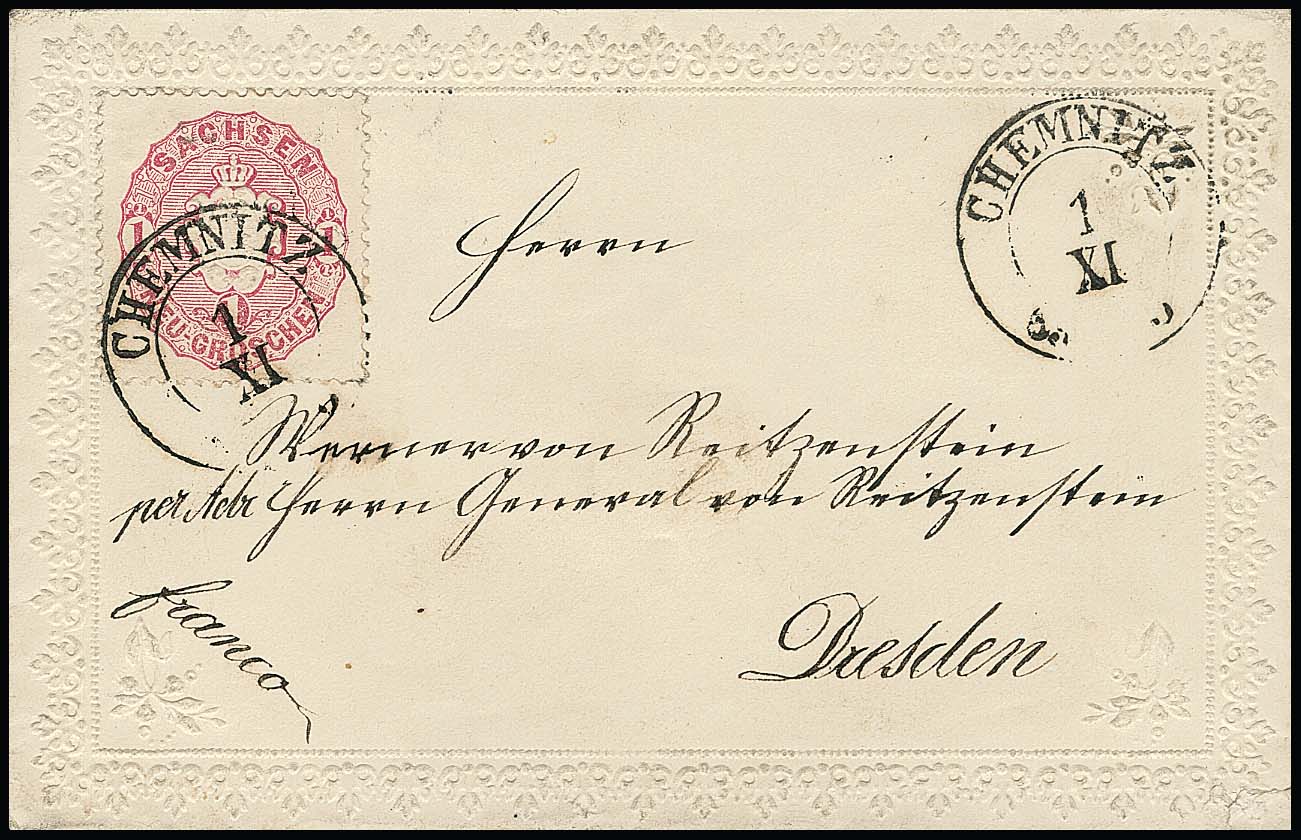 SACHSEN
1 1
NEU-GROSCHEN
CHEMNITZ
1
XI
CHEMNITZ
1
XI
Herrn
Werner von Reitzenstein
per Adr Herrn General von Reitzenstein
franco
Dresden